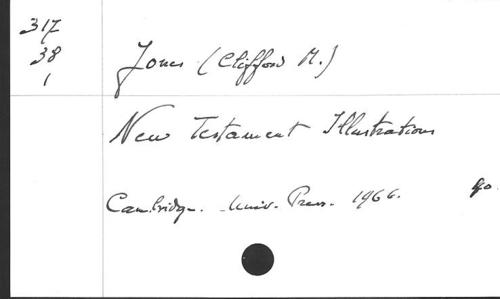 317
38
1
Jones (Clifford M.)
New Testament Illustrations
Cambridge. Univ. Press. 1966. go.